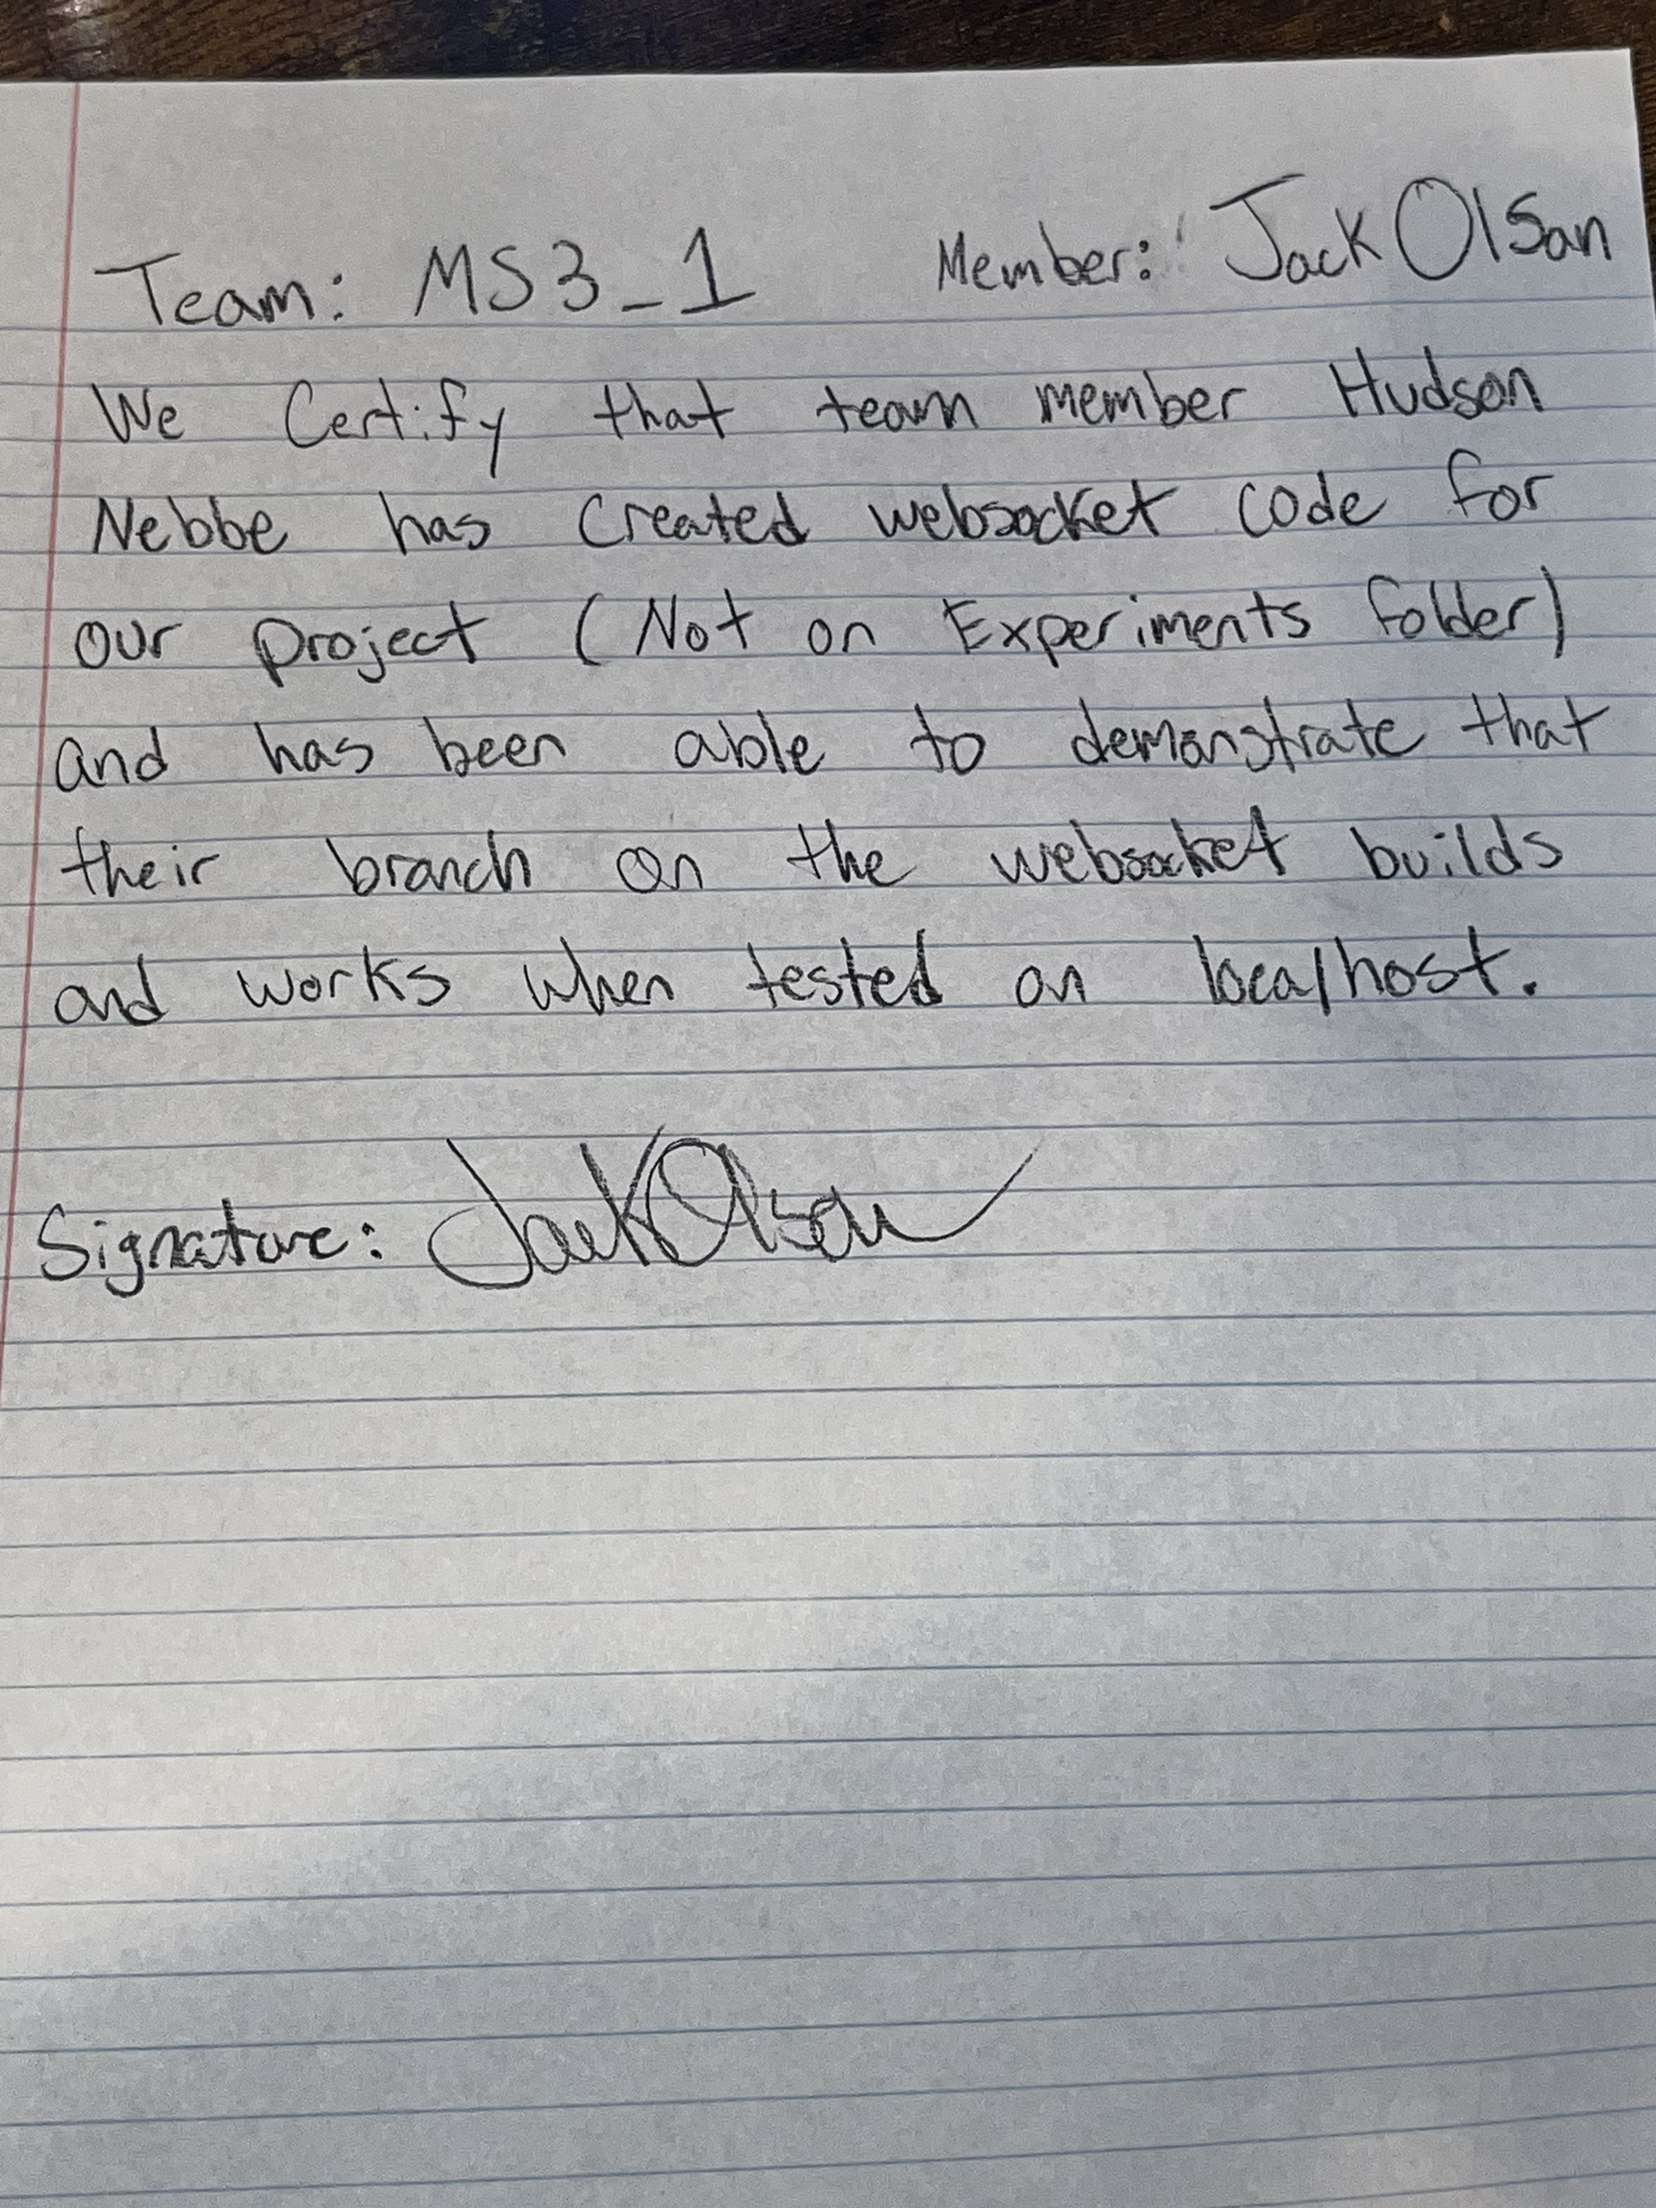 Team: MS3_1 Member: Jack Olson
We Certify that team member Hudson
Nebbe has created websocket code for
our project (Not on Experiments folder)
and has been able to demonstrate that
their branch on the websocket builds
and works when tested on localhost.
Signature: Jack Olson